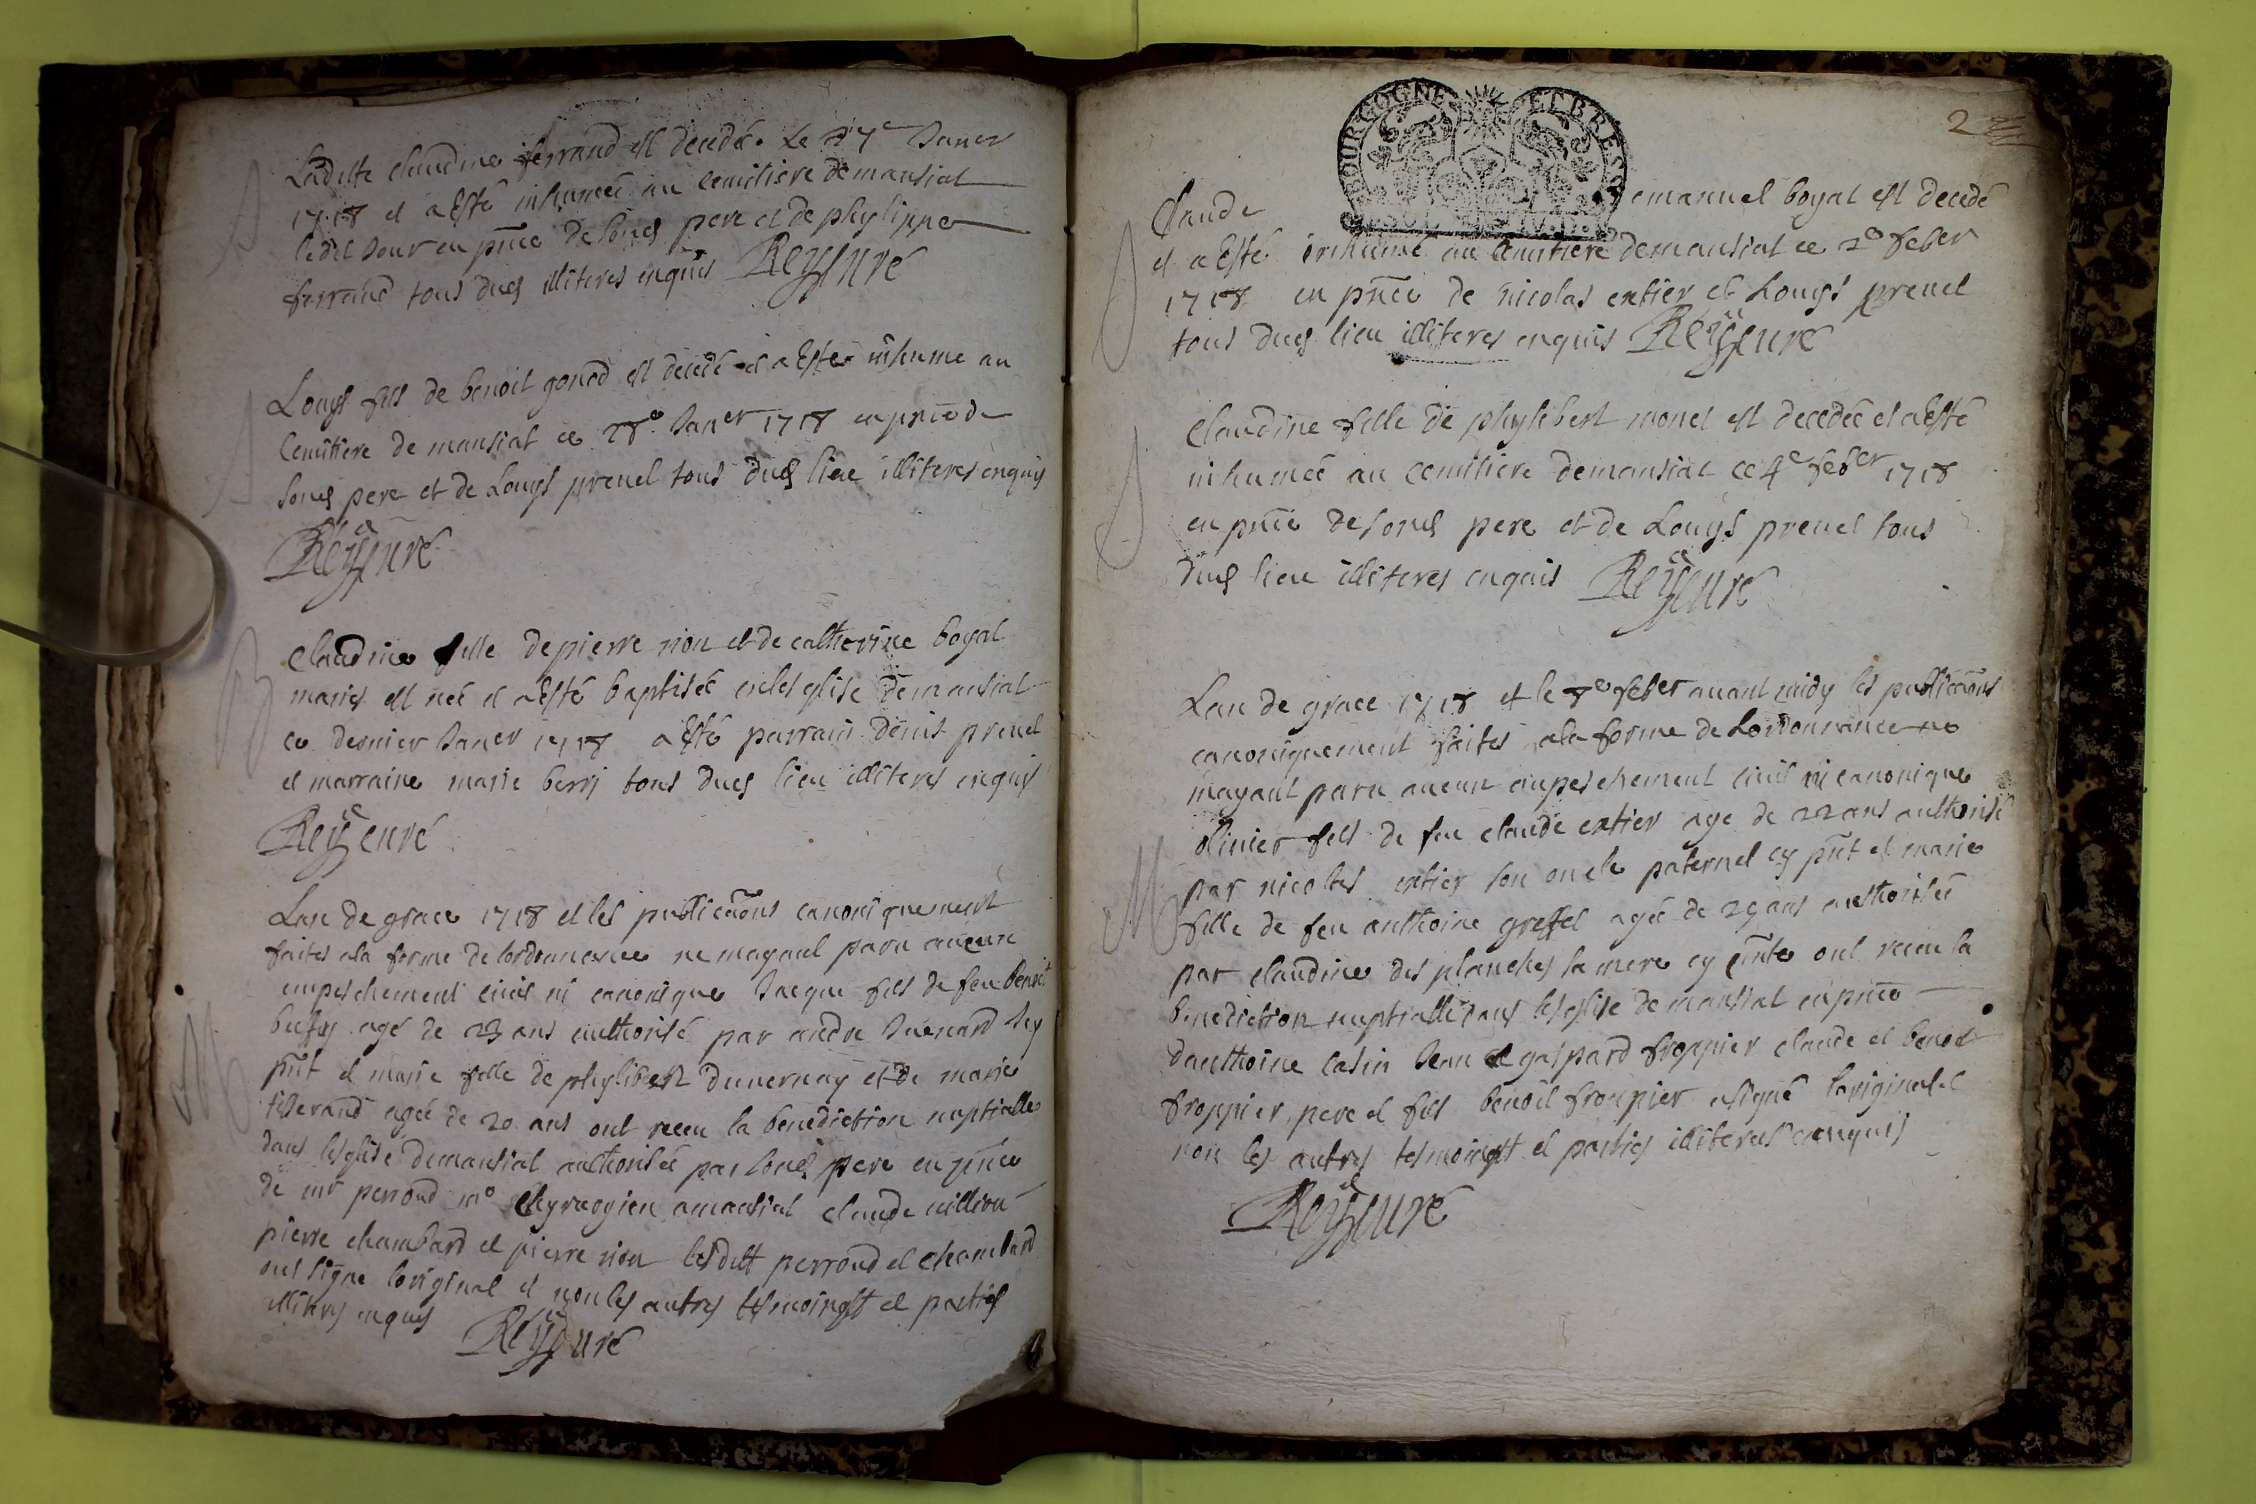 Ladite claudine ferrand est decedée Le 27e Janer
1718 et a Esté inhumeé au cemitiere de mansiat
ledit Jour en pnce de sond pere et de phylippe
ferrand tous dud illiteres enquis Reyssuré
Louys fils de benoit gonod est decedé et a Esté inhume au
cemitiere de mansiat ce 28e Janer 1718 en pnce de
sond pere et de Louys prevel tous dud lieu illiteres enquis
Reyssuré
Claudine fille de pierre nion et de catherine boyat
maries est neé et a Esté baptiseé en lesglise de mansiat
ce dernier Janer 1718 a Esté parrain denis prevel
et marraine marie berri tous dud lieu illiteres enquis
Reyssuré
Lan de grace 1718 et les publicaons canoniquement
faites ala forme de lordonnance ne mayant paru aucun
empeschement civil ni canonique Jacque fils de feu benoit
agé de 23 ans authorisé par andre Juenard Icy
pnt et marie fille de phylibert duvernay et de marie
tisserand ageé de 20 ans ont receu la benediction nuptialle
dans lesglise de mansiat authoriseé par sond pere en pnce
de mr perroud me Chyrurgien a mansiat claude million
pierre chambard et pierre nion lesditt perroud et chambard
ont signe loriginal et non les autres tesmoingtt et parties
illiteres enquis Reyssuré
2
BOURGOGNE ET BRESSE
Claude emanuel boyat est decedé
et a Esté inhumé au cemitiere de mansiat ce 2e feber
1718 en pnce de nicolas extier et Louys prevel
tous dud lieu illiteres enquis Reyssuré
Claudine fille de phylibert monet est decedeé et a Esté
inhumeé au cemitiere de mansiat ce 4e feber 1718
en pnce de sond pere et de Louys prevel tous
dud lieu illiteres enquis Reyssuré
Lan de grace 1718 et le 8e feber avant midy les publicaons
canoniquement faites ala forme de Lordonnance ne
mayant paru aucun empeschement civil ni canonique
olivier fils de feu claude extier age de 22 ans authorisé
par nicolas extier son oncle paternel cy pnt et marie
fille de feu anthoine greffet ageé de 29 ans authoriseé
par claudine des planches sa mere cy pnte ont receu la
benediction nuptialle dans lesglise de mansiat en pnce
danthoine casin Jean et gaspard froppier claude et benoit
froppier pere et fils benoit froppier a signé loriginal et
non les autres tesmoingtt et parties illiteres enquis
Reyssuré